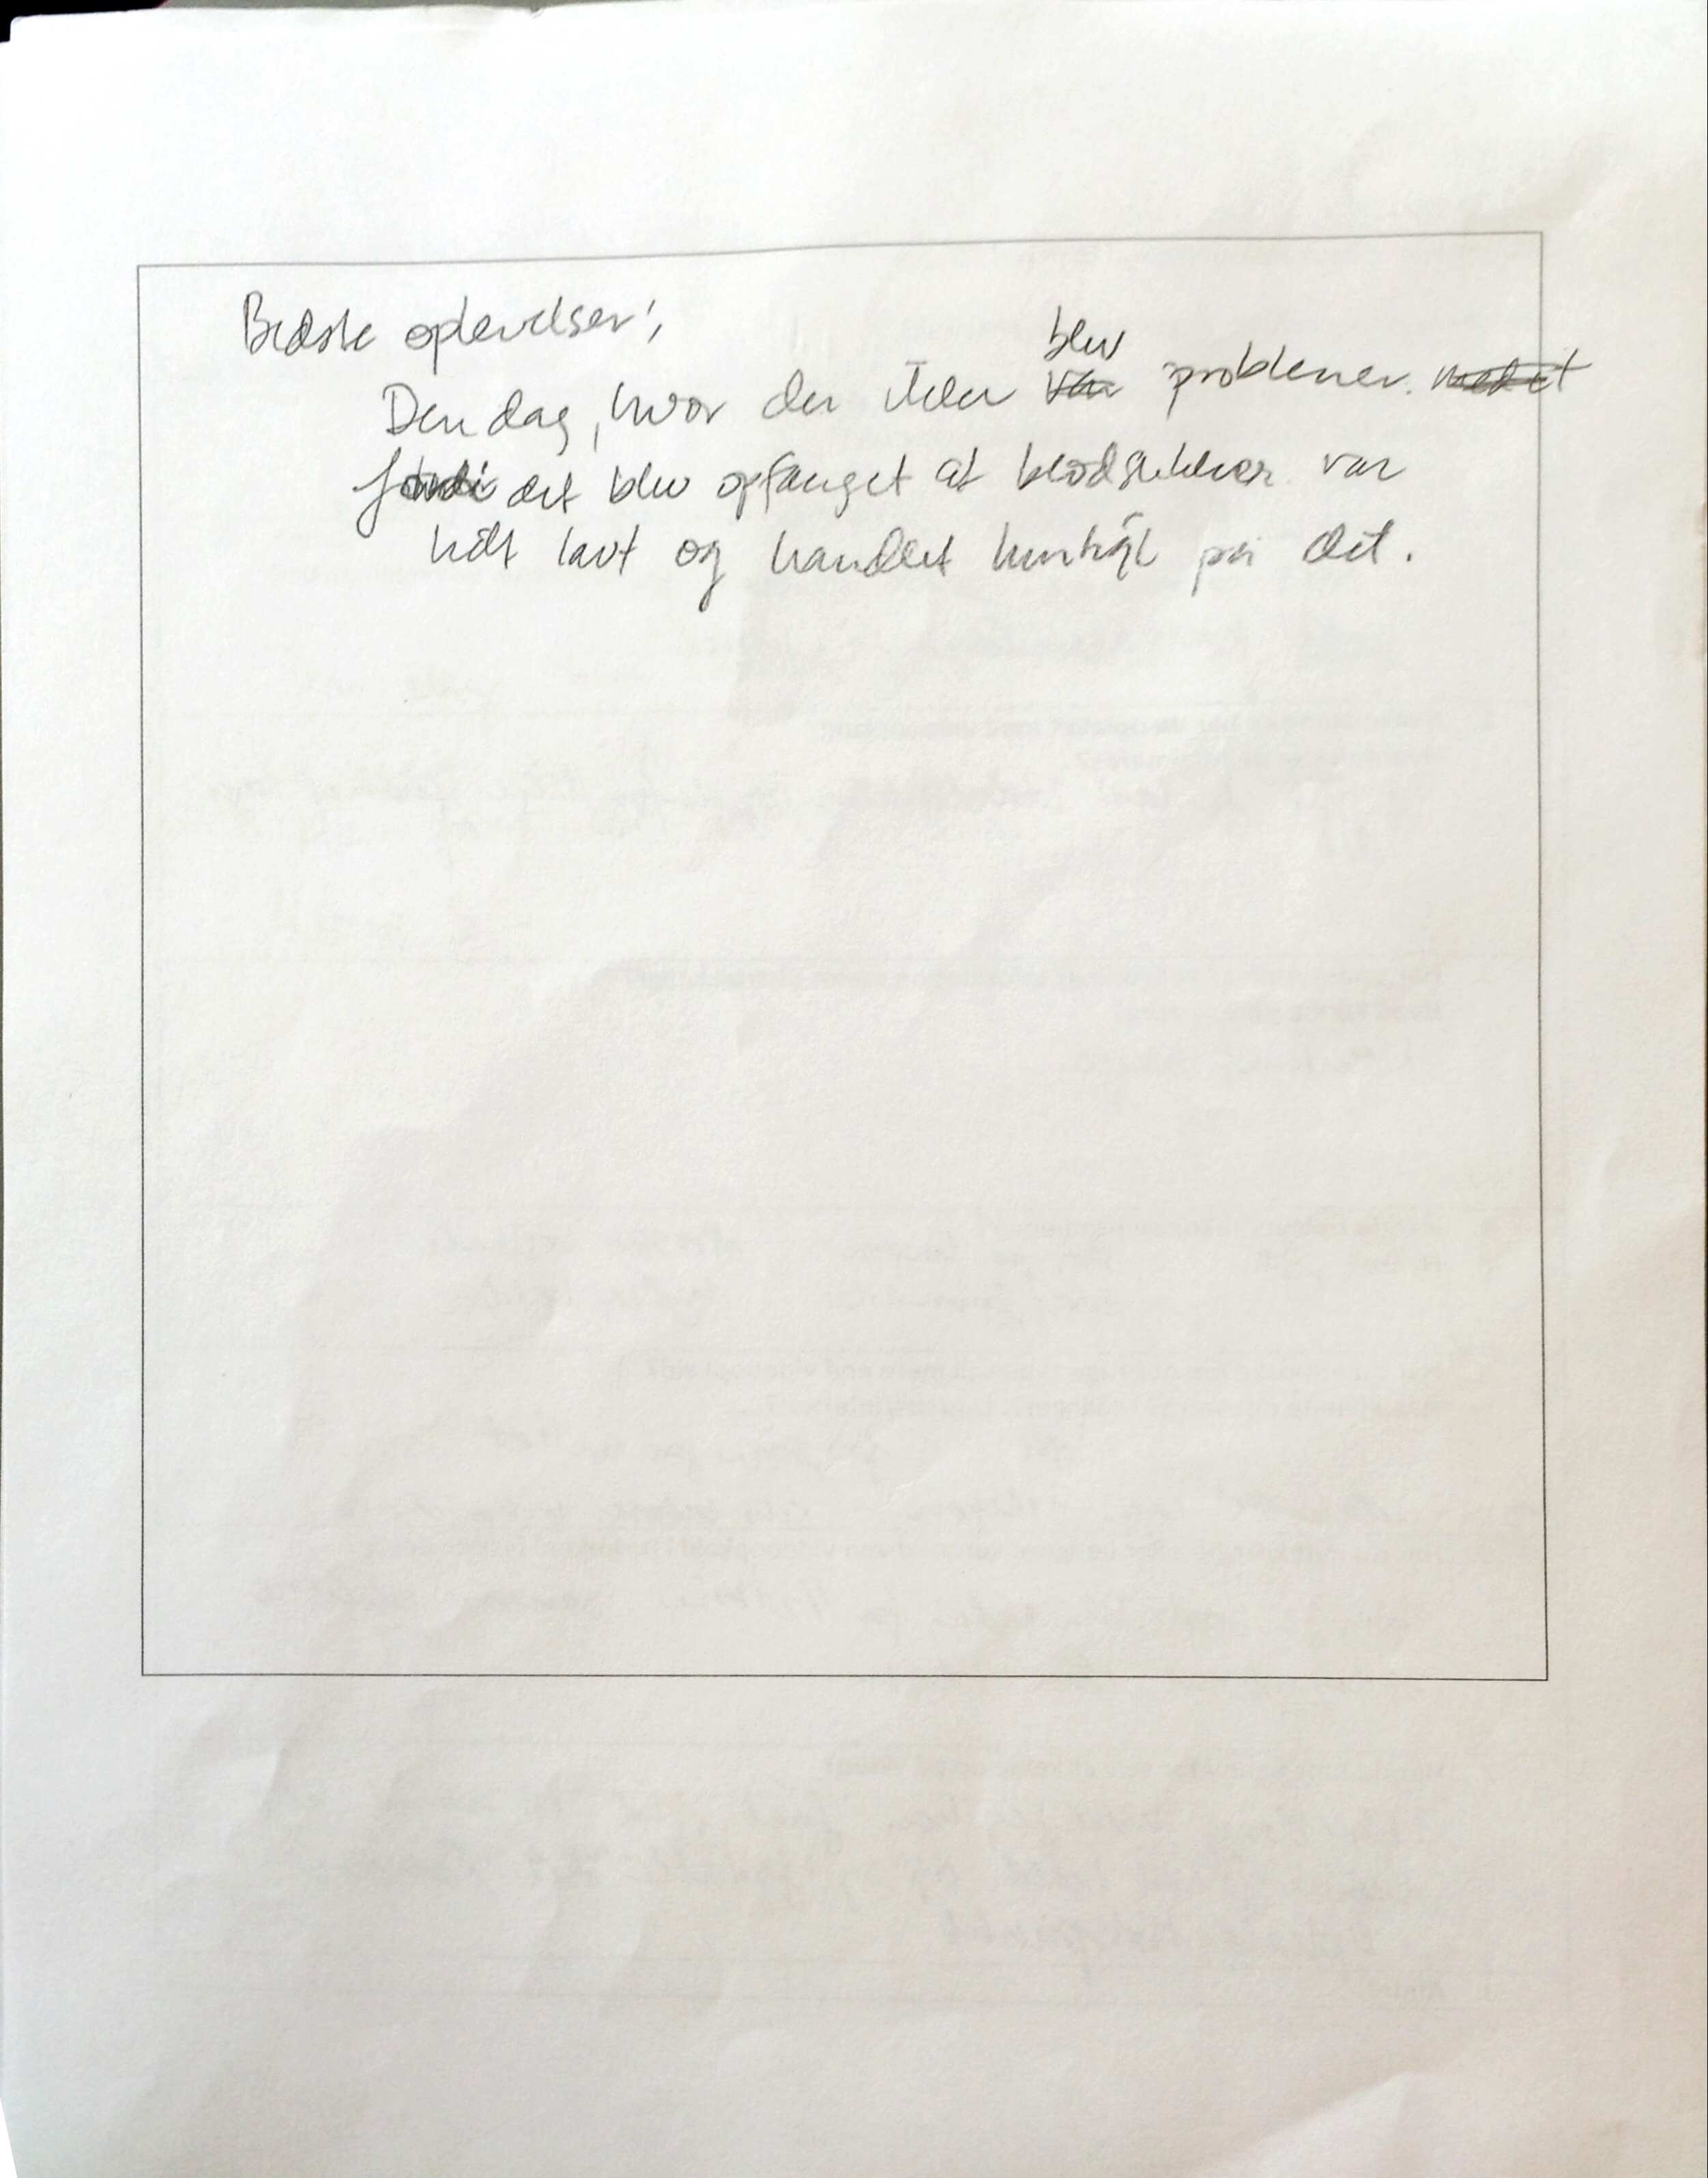 Bedste oplevelser:
Den dag, hvor der ikke blev problemer.
fordi det blev opfanget at blodsukker var
helt lavt og handlet hurtigt på det.